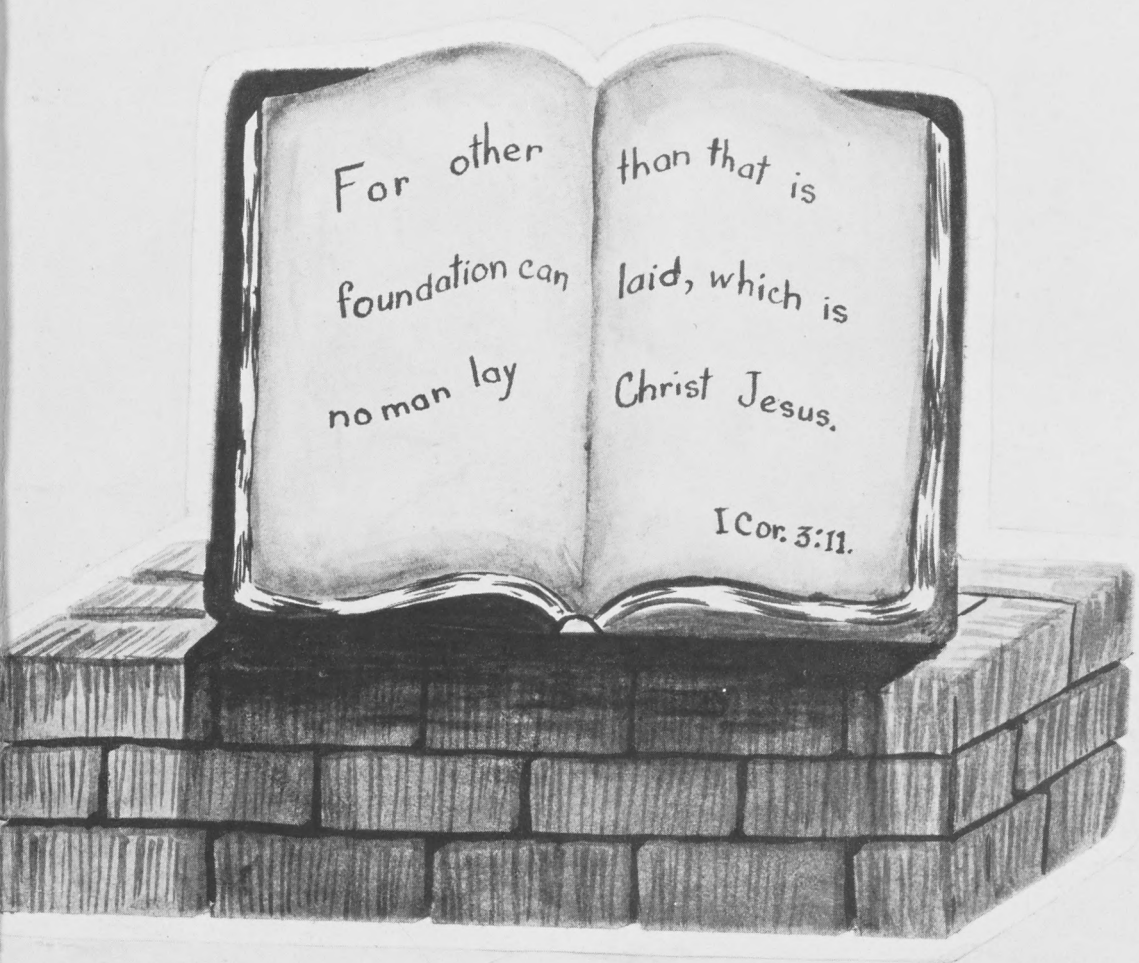 For other
foundation can
no man lay
than that is
laid, which is
Christ Jesus.
I Cor. 3:11.